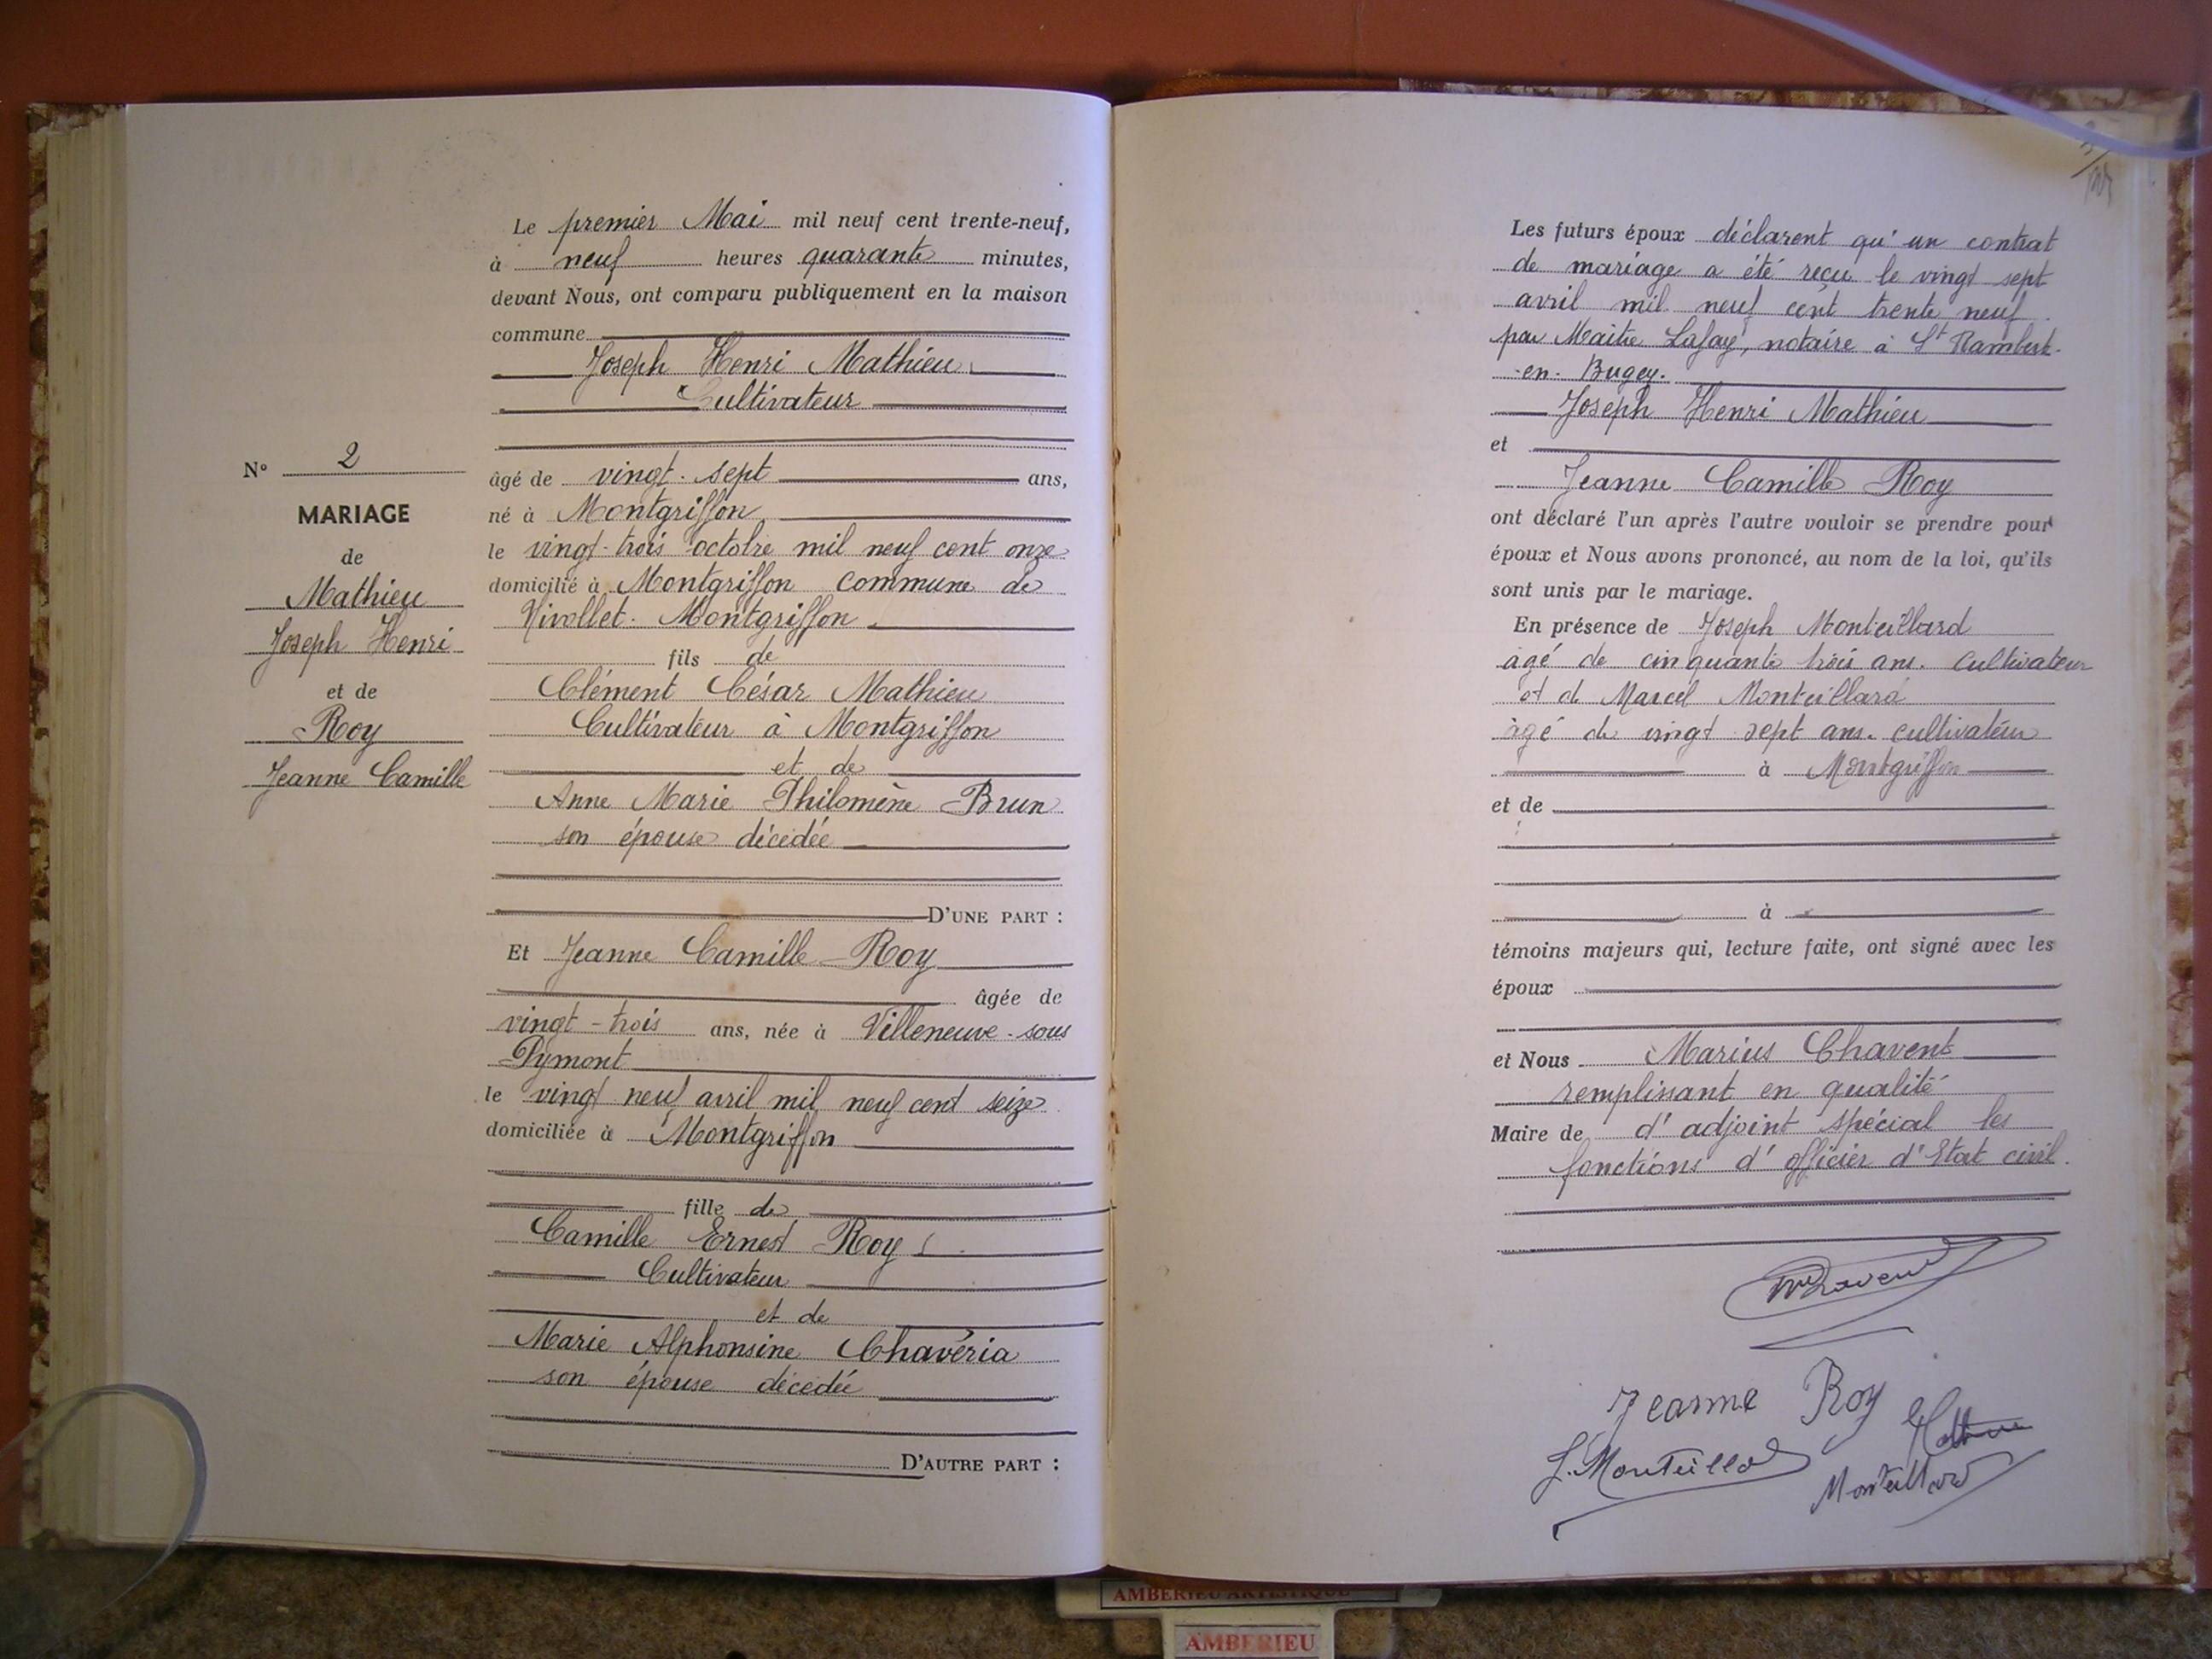 N° 2
MARIAGE
de
Mathieu
Joseph Henri
et de
Roy
Jeanne Camille
Le premier Mai mil neuf cent trente-neuf,
à neuf heures quarante minutes,
devant Nous, ont comparu publiquement en la maison
commune
Joseph Henri Mathieu
Cultivateur
âgé de vingt-sept ans,
né à Montgriffon
le vingt-trois octobre mil neuf cent onze
domicilié à Montgriffon commune de
Nivollet-Montgriffon
fils de
Clément César Mathieu
Cultivateur à Montgriffon
et de
Anne Marie Philomène Brun
son épouse décédée
D'UNE PART :
Et Jeanne Camille Roy
âgée de
vingt-trois ans, née à Villeneuve-sous
Pymont
le vingt neuf avril mil neuf cent seize
domiciliée à Montgriffon
fille de
Camille Ernest Roy
Cultivateur
et de
Marie Alphonsine Chavéria
son épouse décédée
D'AUTRE PART :
Les futurs époux déclarent qu'un contrat
de mariage a été reçu le vingt sept
avril mil neuf cent trente neuf
par Maitre Lafay, notaire à St Rambert-
-en-Bugey.
Joseph Henri Mathieu
et
Jeanne Camille Roy
ont déclaré l'un après l'autre vouloir se prendre pour
époux et Nous avons prononcé, au nom de la loi, qu'ils
sont unis par le mariage.
En présence de Joseph Monteillard
agé de cinquante trois ans. Cultivateur
et de Marcel Monteillard
agé de vingt sept ans. cultivateur
à Montgriffon
et de
à
témoins majeurs qui, lecture faite, ont signé avec les
époux
et Nous Marius Chavent
remplissant en qualité
Maire de d'adjoint spécial les
fonctions d'officier d'Etat civil.
Jeanne Roy
J. Monteillard
Monteillard
AMBERIEU ARTISTIQUE
AMBERIEU